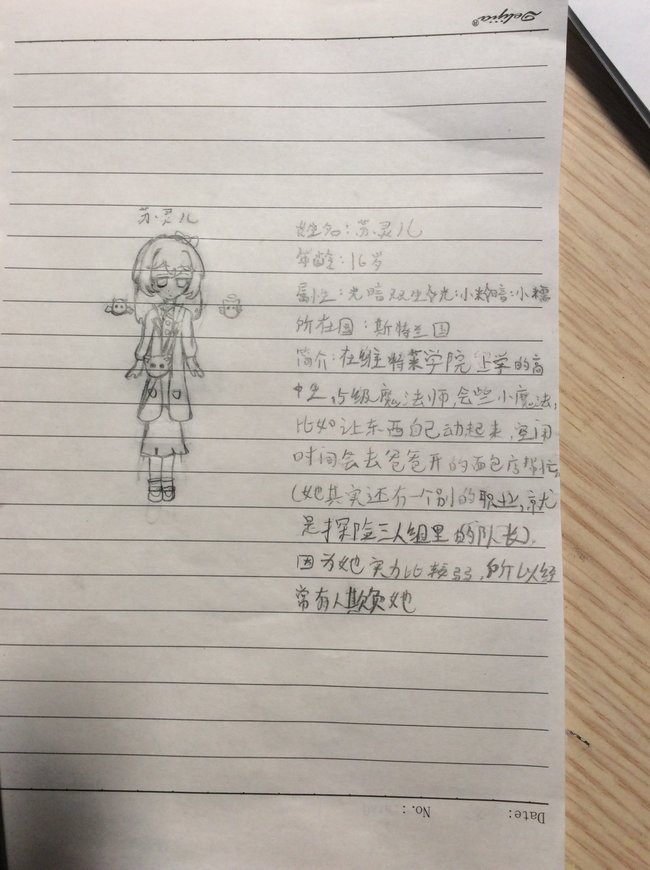 Delijia®
苏灵儿
姓名:苏灵儿
年龄:16岁
属性:光暗双生(光:小粉暗:小糯
所在国:斯特兰国
简介:在维特莱学院上学的高
中生,5级魔法师,会些小魔法,
比如让东西自己动起来,空闲
时间会去爸爸开的面包店帮忙,
(她其实还有一个别的职业,就
是探险三人组里的队长).
因为她实力比较弱,所以经
常有人欺负她
No.:
Date: